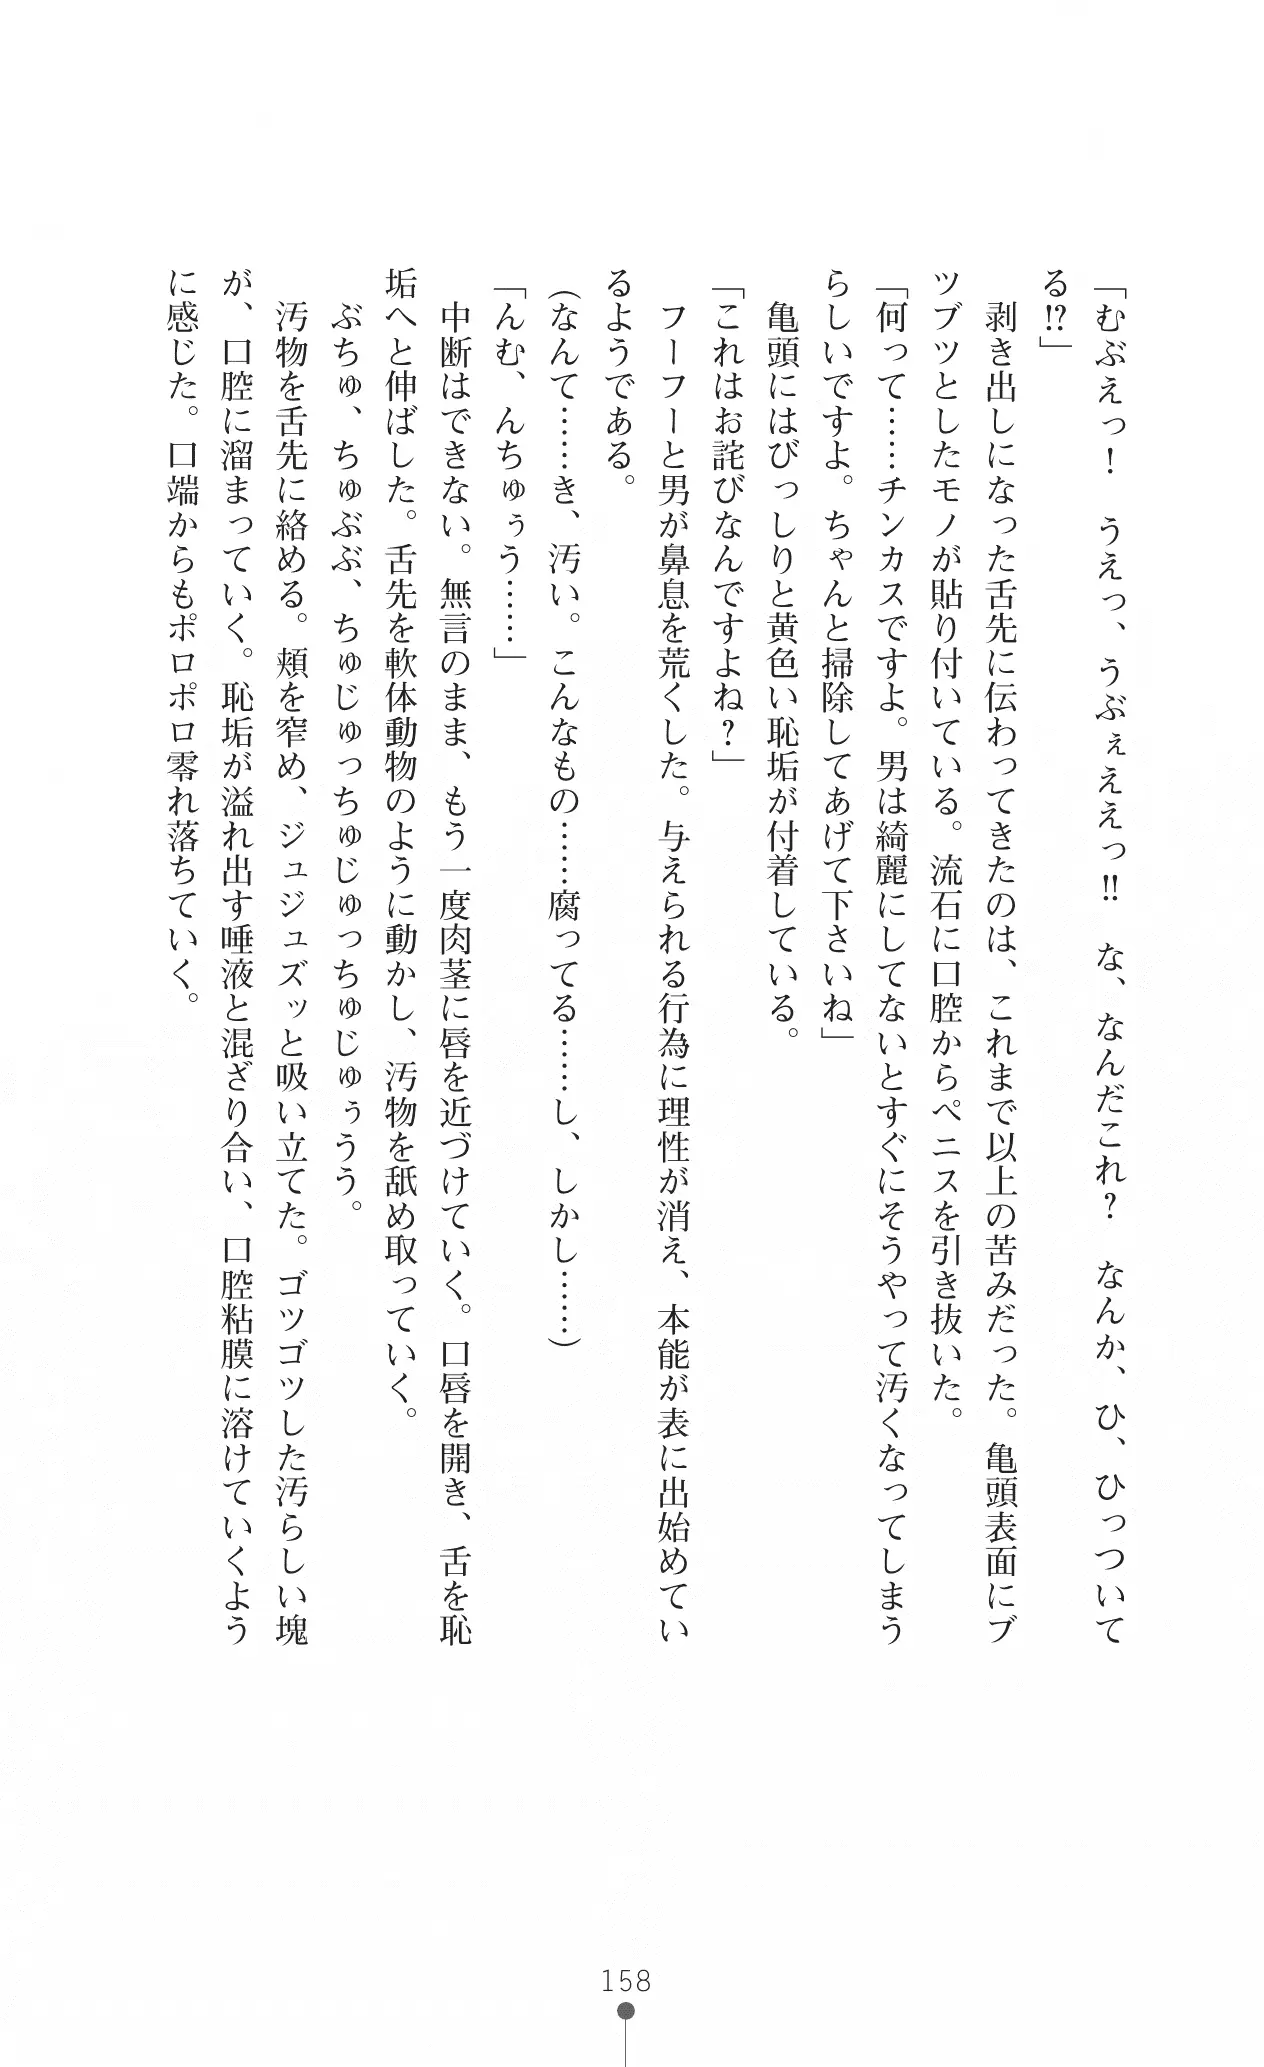 「むぶえっ！　うえっ、うぶぇええっ!!　な、なんだこれ？　なんか、ひ、ひっついて
る!?」
　剥き出しになった舌先に伝わってきたのは、これまで以上の苦みだった。亀頭表面にブ
ツブツとしたモノが貼り付いている。流石に口腔からペニスを引き抜いた。
「何って……チンカスですよ。男は綺麗にしてないとすぐにそうやって汚くなってしまう
らしいですよ。ちゃんと掃除してあげて下さいね」
　亀頭にはびっしりと黄色い恥垢が付着している。
「これはお詫びなんですよね？」
　フーフーと男が鼻息を荒くした。与えられる行為に理性が消え、本能が表に出始めてい
るようである。
（なんて……き、汚い。こんなもの……腐ってる……し、しかし……）
「んむ、んちゅぅう……」
　中断はできない。無言のまま、もう一度肉茎に唇を近づけていく。口唇を開き、舌を恥
垢へと伸ばした。舌先を軟体動物のように動かし、汚物を舐め取っていく。
　ぶちゅ、ちゅぶぶ、ちゅじゅっちゅじゅっちゅじゅぅうう。
　汚物を舌先に絡める。頬を窄め、ジュジュズッと吸い立てた。ゴツゴツした汚らしい塊
が、口腔に溜まっていく。恥垢が溢れ出す唾液と混ざり合い、口腔粘膜に溶けていくよう
に感じた。口端からもポロポロ零れ落ちていく。
158